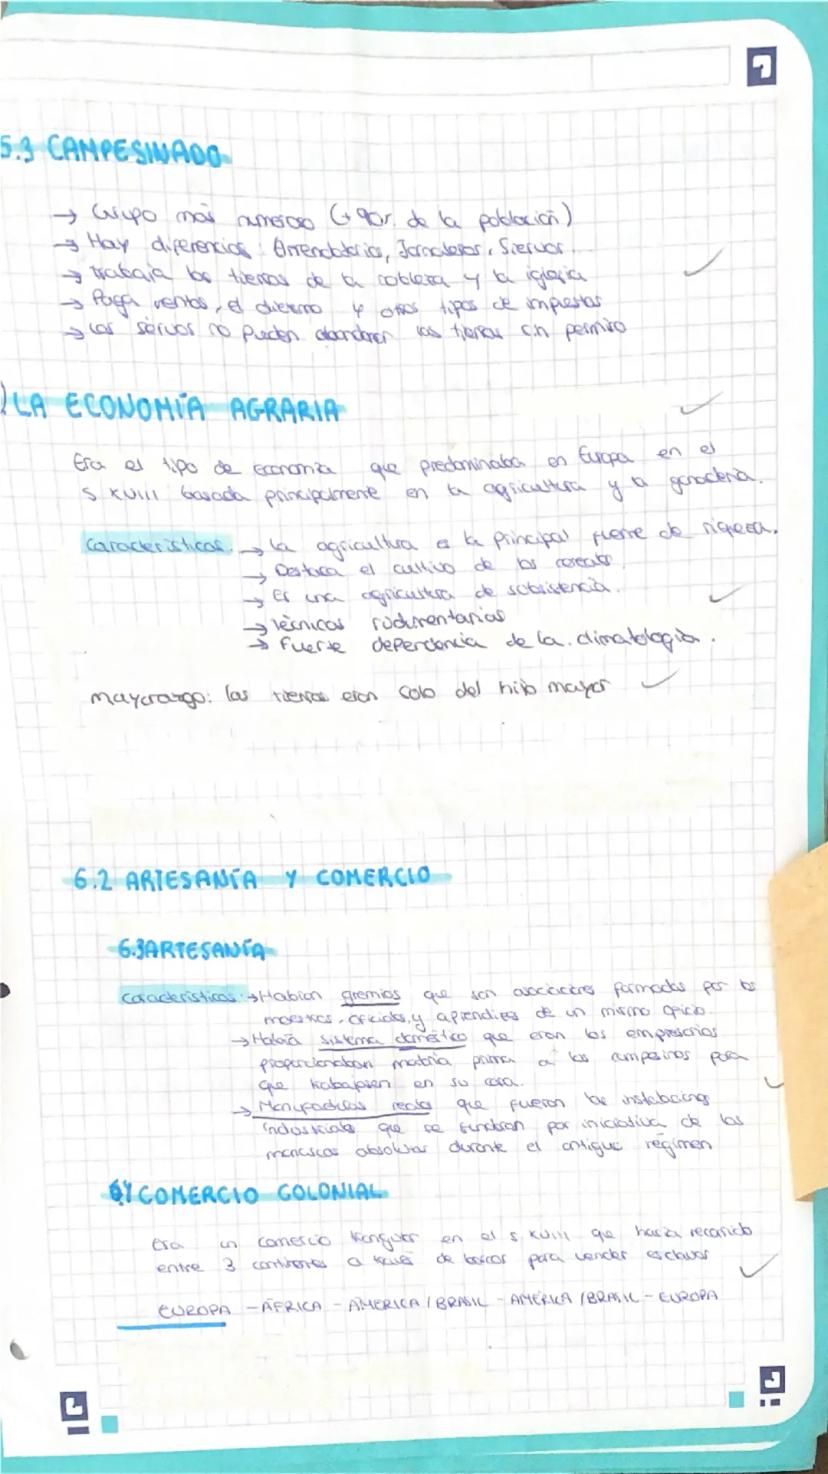 5.3 CAMPESINADO
→ Grupo más numeroso (+ 90% de la población)
→ Hay diferencias: Arrendatarios, Jornaleros, Siervos.
→ Trabaja las tierras de la nobleza y la iglesia
→ Paga rentas, el diezmo y otros tipos de impuestos
→ Los siervos no pueden abandonar las tierras sin permiso
) LA ECONOMÍA AGRARIA
Era el tipo de economia que predominaba en Europa en el
S XVIII basada principalmente en la agricultura y la ganaderia.
Características → La agricultura es la principal fuente de riqueza.
→ Destaca el cultivo de los cereales.
→ Es una agricultura de subsistencia.
→ Técnicas rudimentarias
→ Fuerte dependencia de la climatologia.
mayorazgo: las tierras eran solo del hijo mayor
6.2 ARTESANÍA Y COMERCIO
6.3 ARTESANÍA
Características: → Habían gremios que son asociaciones formadas por los
maestros, oficiales, y aprendices de un mismo oficio.
→ Había sistema doméstico que eran los empresarios
proporcionaban matria prima a los campesinos para
que trabajasen en su casa.
→ Manufacturas reales que fueron las instalaciones
industriales que se fundaron por iniciativa de los
monarcas absolutas durante el antiguo régimen
COMERCIO COLONIAL
Era un comercio triangular en el s XVIII que hacía recorrido
entre 3 continentes a través de barcos para vender esclavos
EUROPA - ÁFRICA - AMÉRICA / BRASIL - AMÉRICA / BRASIL - EUROPA